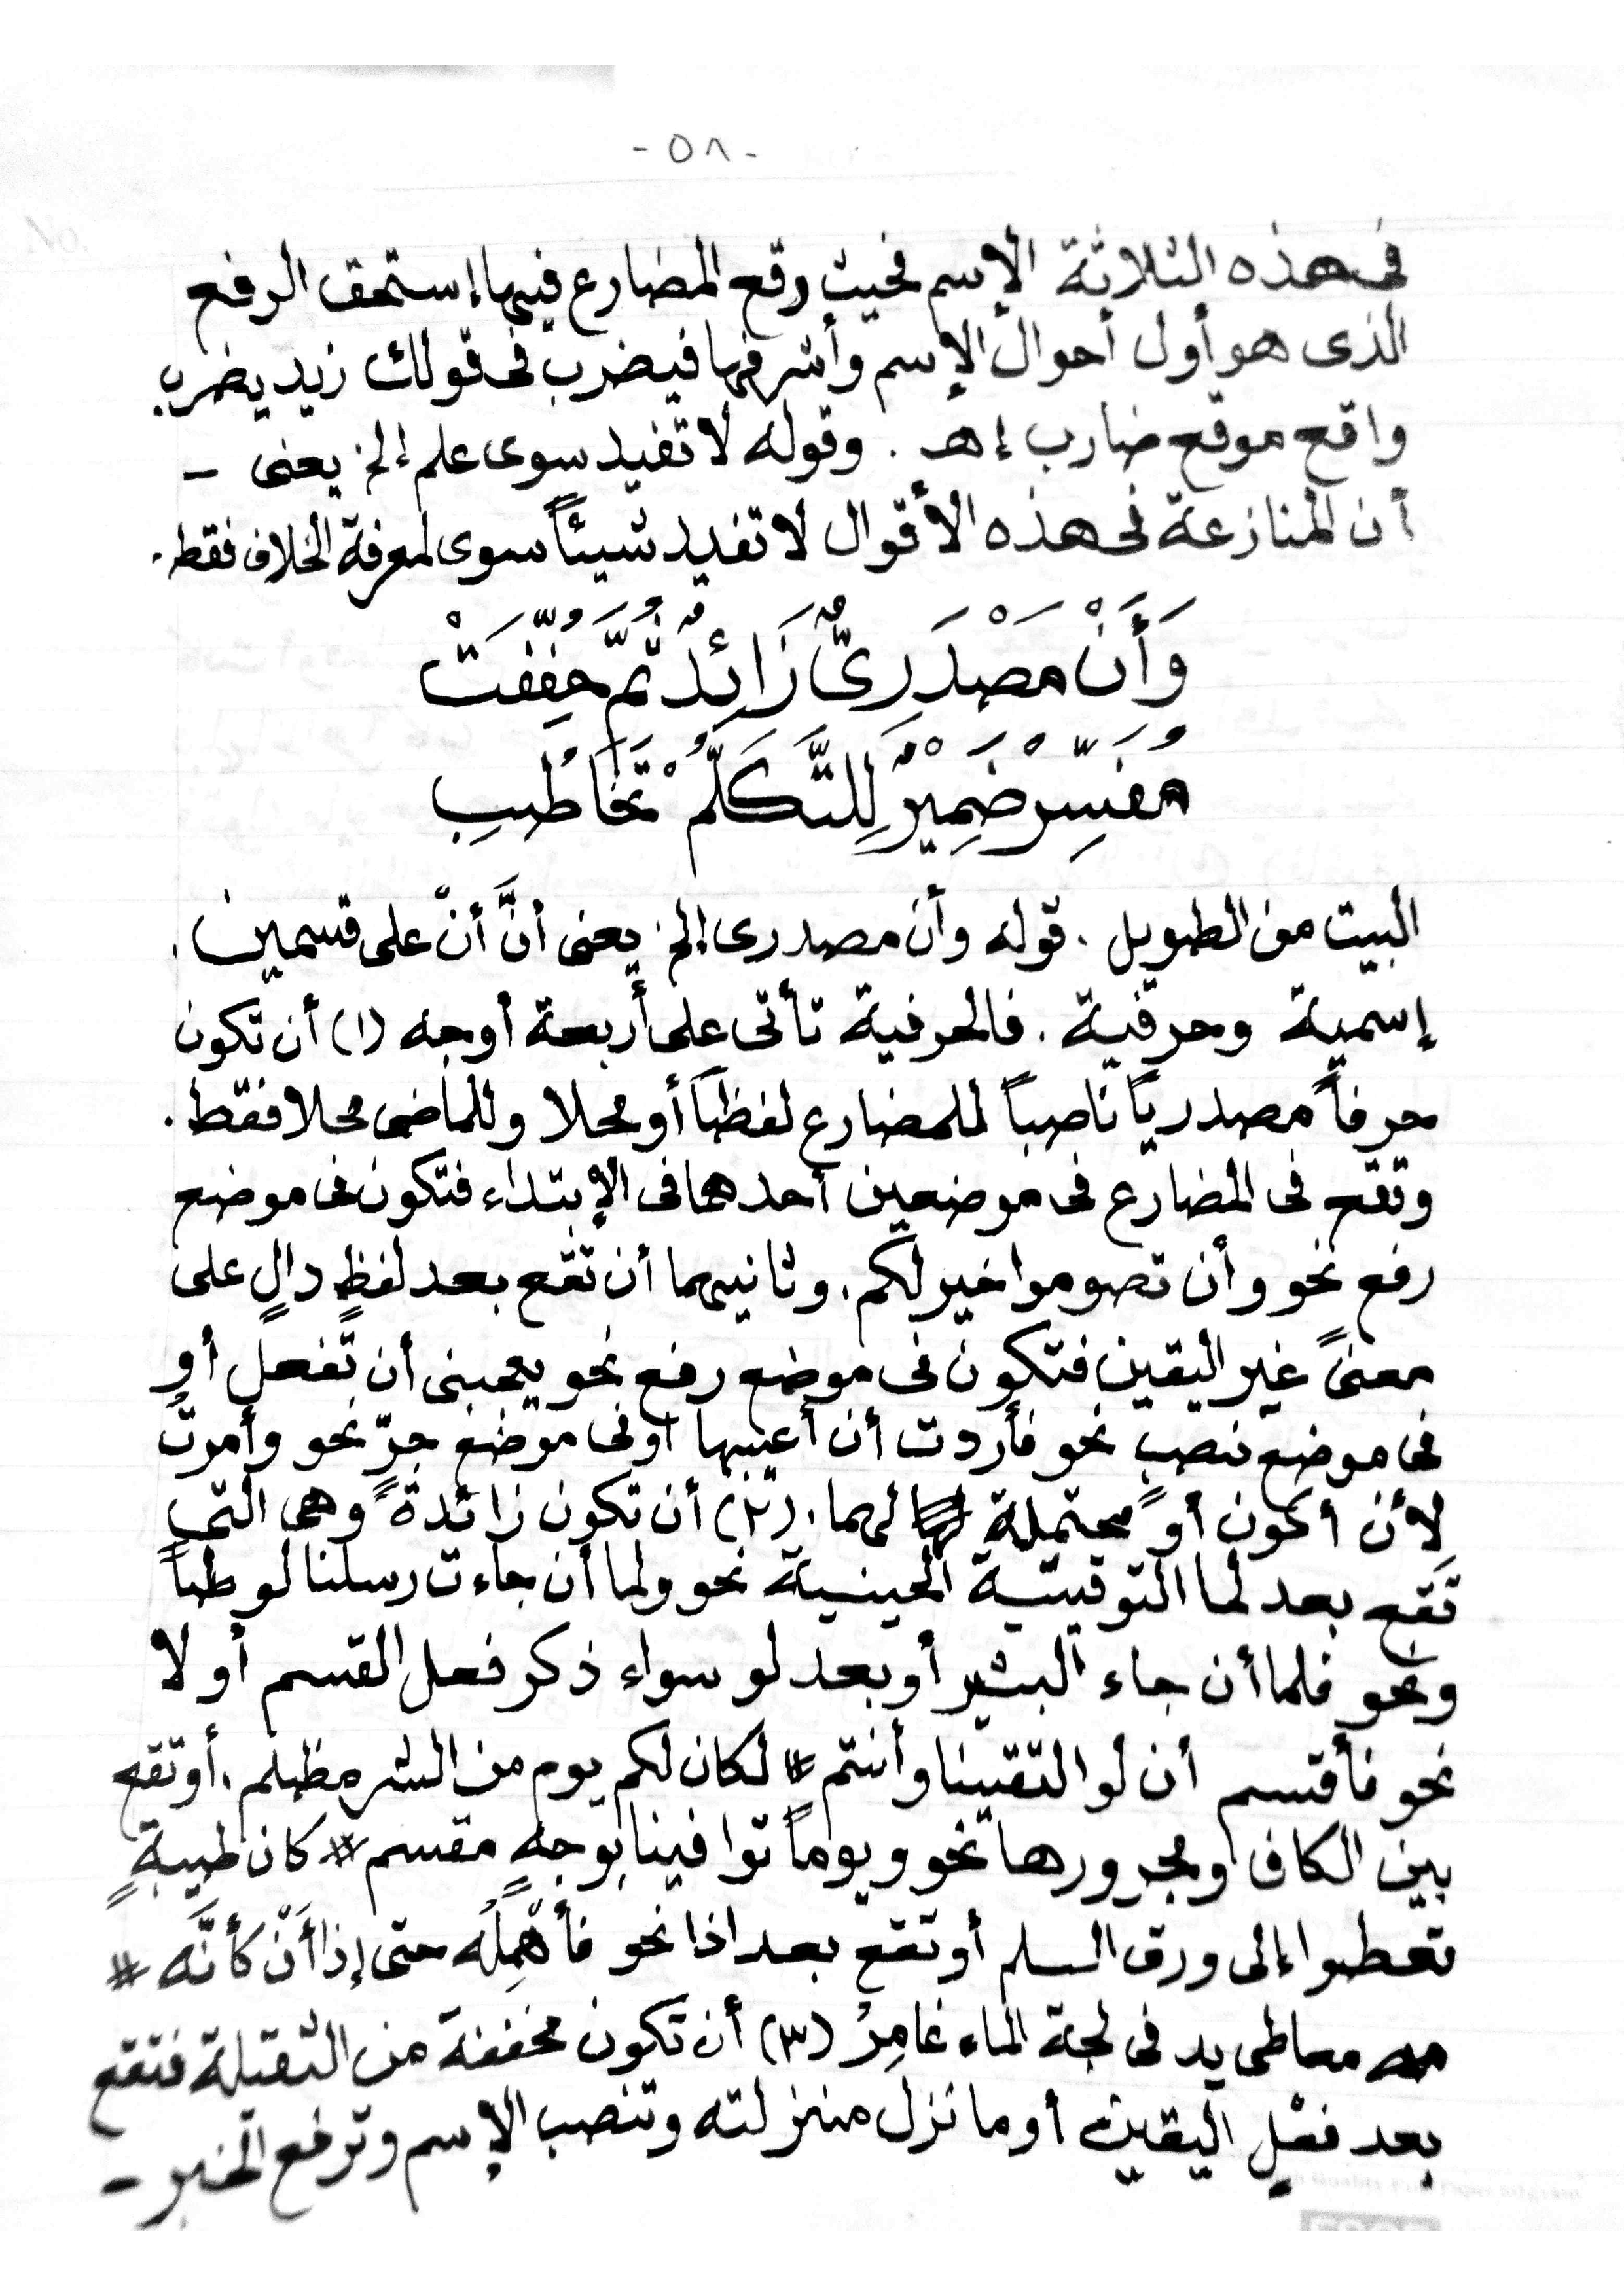 -٥٨-
فى هذه الثلاثة الإسم فحيث وقع المضارع فيها إستحق الرفع
الذى هو أول أحوال الإسم وأشرفها فيضرب فى قولك زيد يضرب
واقع موقع ضارب إهـ . وقوله لا تفيد سوى علم إلخ يعنى -
أن المنازعة فى هذه الأقوال لا تفيد شيئاً سوى لمعرفة الخلاف فقط.
وَأَنْ مَصْدَرِىٌّ زَائِدٌ ثُمَّ خُفِّفَتْ
مُفَسِّرْ ضَمِيْرٌ لِلتَّكَلُّمْ تَخَاطُبِ
البيت من الطويل . قوله وأن مصدرى إلخ يعنى أنَّ أنْ على قسمين .
إسمية وحرفية . فالحرفية تأتى على أربعة أوجه (١) أن تكون
حرفاً مصدرياً ناصباً للمضارع لفظاً أو محلا وللماضى محلا فقط .
وتقع فى المضارع فى موضعين أحدهما فى الإبتداء فتكون فى موضع
رفع نحو وأن تصوموا خير لكم . وثانيهما أن تقع بعد لفظٍ دالٍ على
معنىً غير اليقين فتكون فى موضع رفع نحو يعجبنى أن تفعل أو
فى موضع نصبٍ نحو فأردت أن أعيبها أو فى موضع جرٍّ نحو وأمرت
لأن أكون أو محتملة لهما . (٢) أن تكون زائدةً وهى التى
تَقع بعد لما التوقيتية الحينية نحو ولما أن جاءت رسلنا لوطاً
ونحو فلما أن جاء البشير أو بعد لو سواء ذكر فعل القسم أولا
نحو فأقسم أن لو التقينا وأنتم # لكان لكم يوم من الشر مظلم . أو تقع
بين الكاف ومجرورها نحو ويوماً توافينا بوجهٍ مقسم # كان ظبيةٍ
تعطوا إلى ورق السلم أو تقع بعد اذا نحو فأُهْمِلُه حتى إذا أَنْ كَأنَّه #
معاطى يد فى لجة الماء غامِرُ (٣) أن تكون مخففة من الثقيلة فتقع
بعد فعْلٍ اليقين أو ما نزل منزلته وتنصب الإسم وترفع الخبر -